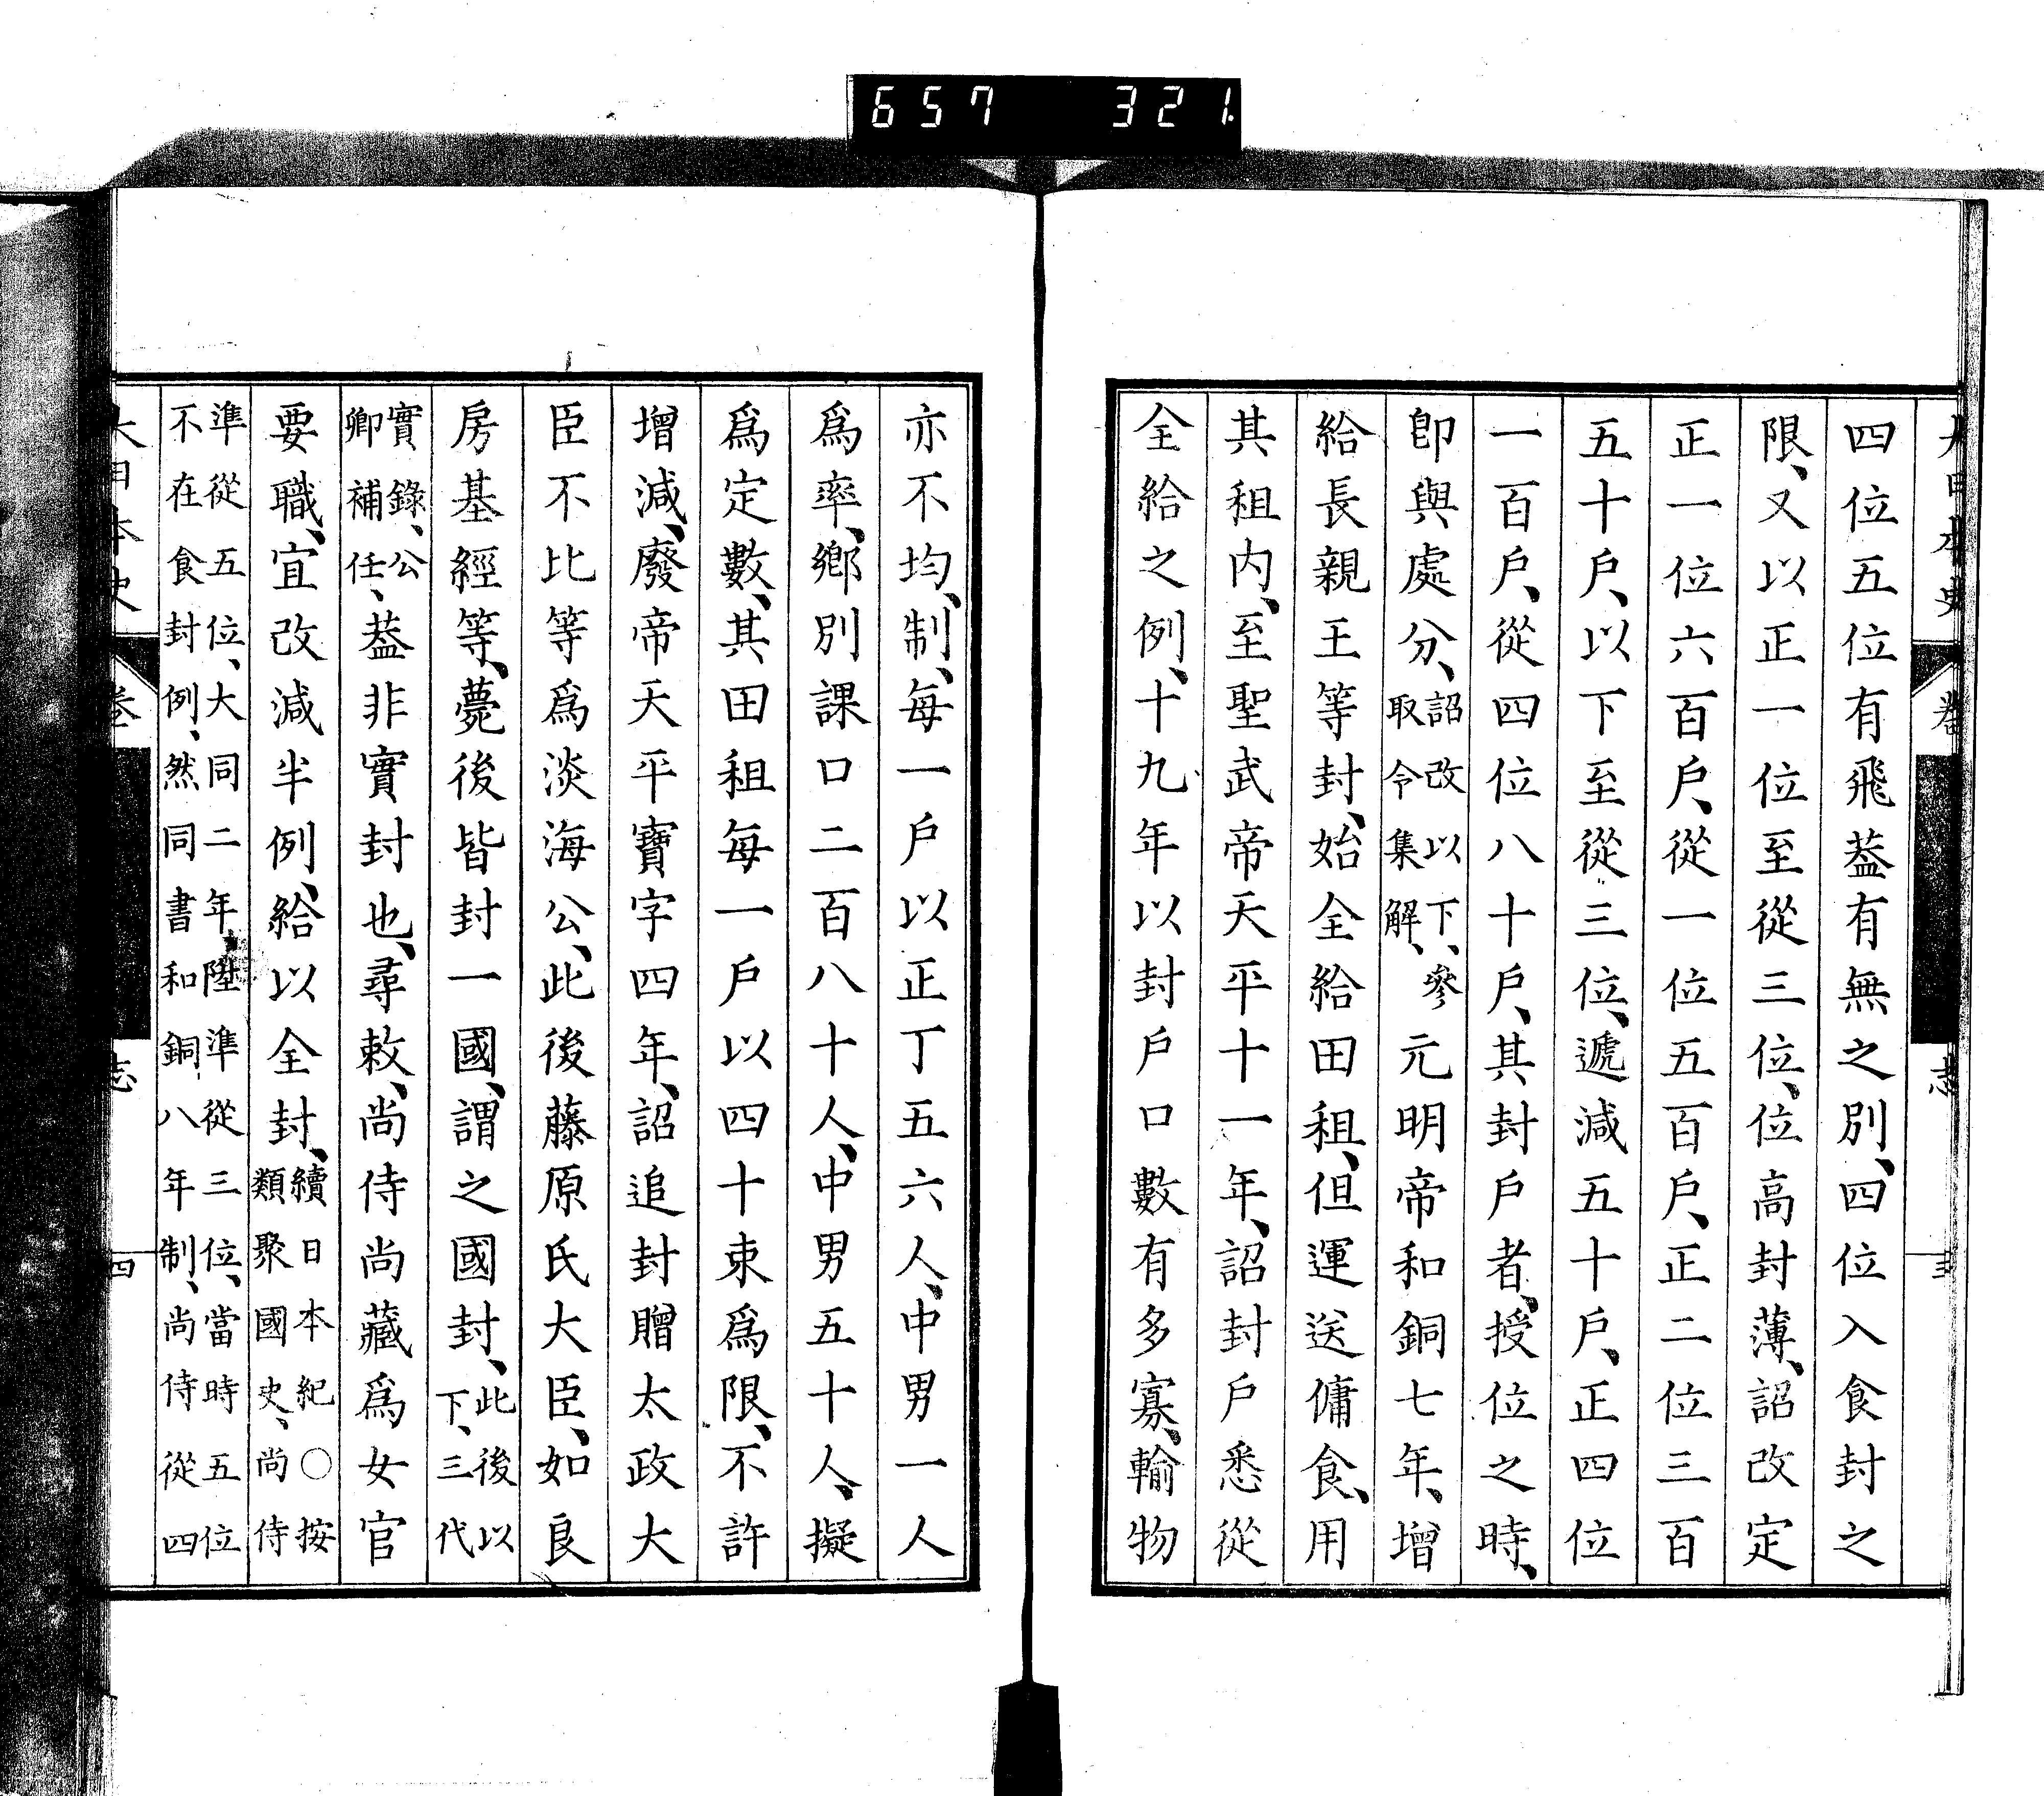 657 321.
四位五位有飛葢有無之別、四位入食封之
限、又以正一位至從三位、位高封薄、詔改定
正一位六百戶、從一位五百戶、正二位三百
五十戶、以下至從三位、遞減五十戶、正四位
一百戶、從四位八十戶、其封戶者、授位之時、
卽與處分、詔改以下、參取令集解、元明帝和銅七年、增
給長親王等封、始全給田租、但運送傭食、用
其租内、至聖武帝天平十一年、詔封戶悉從
全給之例、十九年以封戶口數有多寡、輸物
亦不均、制、每一戶以正丁五六人、中男一人
爲率、鄕別課口二百八十人、中男五十人、擬
爲定數、其田租每一戶以四十束爲限、不許
增減、廢帝天平寶字四年、詔追封贈太政大
臣不比等爲淡海公、此後藤原氏大臣、如良
房基經等、薨後皆封一國、謂之國封、此後以下、三代
實錄、公卿補任、葢非實封也、尋敕、尚侍尚藏爲女官
要職、宜改減半例、給以全封、續日本紀○按類聚國史、尚侍
準從五位、大同二年陞準從三位、當時五位
不在食封例、然同書和銅八年制、尚侍從四
大日本史 卷 志 四